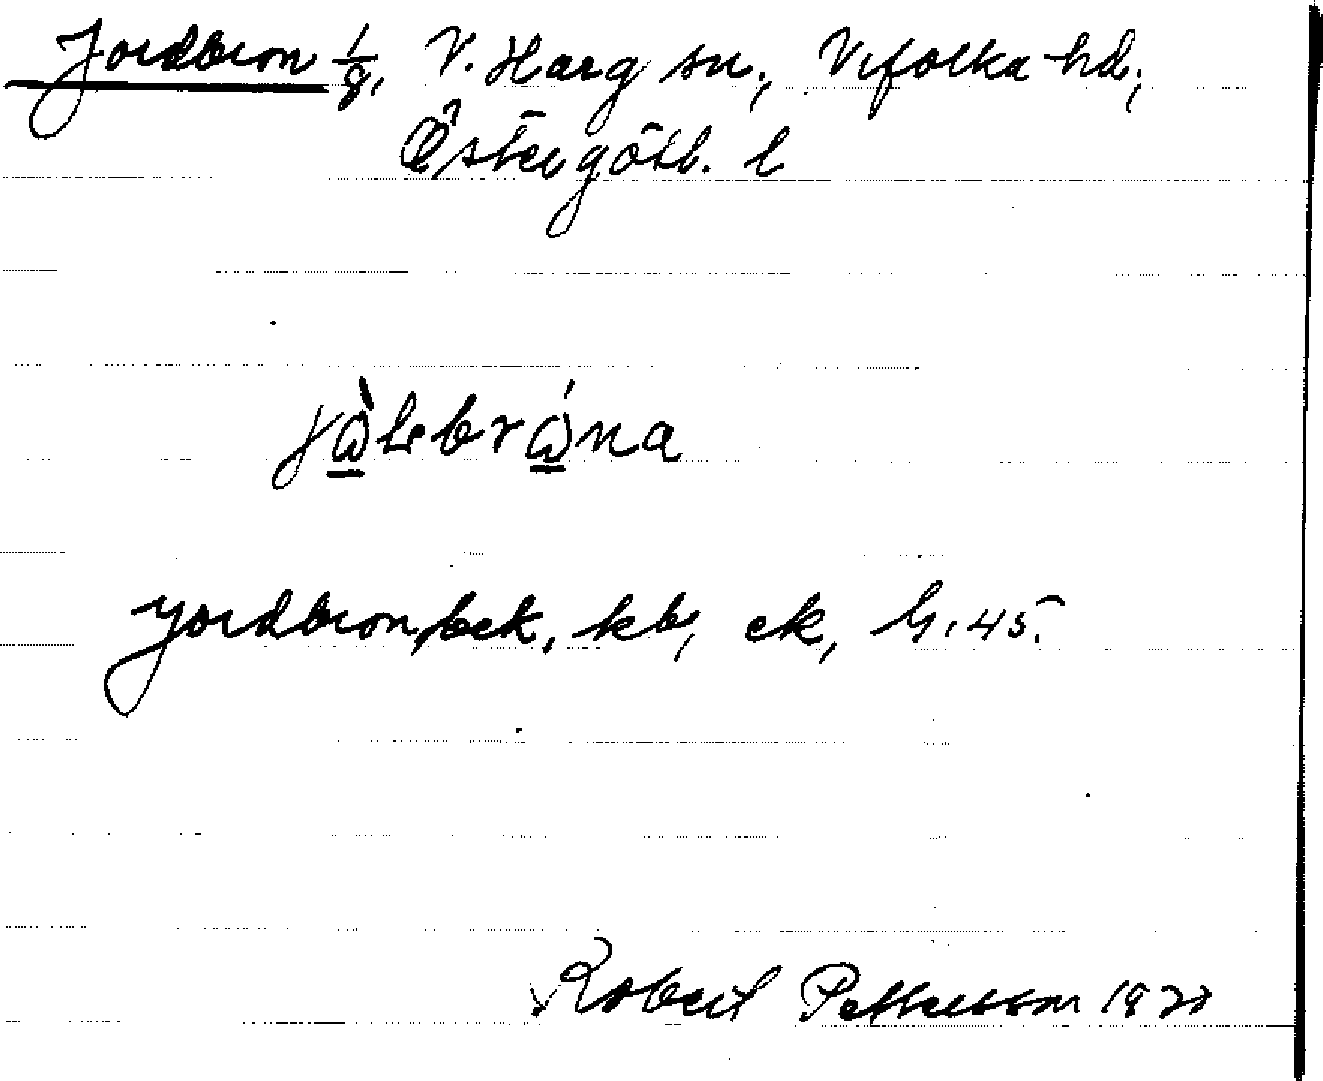 Jordbron 1/8, V. Harg sn, Vifolka hd,
Östergötl. l
jὼ̲lebrώ̲na
Jordbron, bek, kb, ek, G. 45.
Robert Pettersson